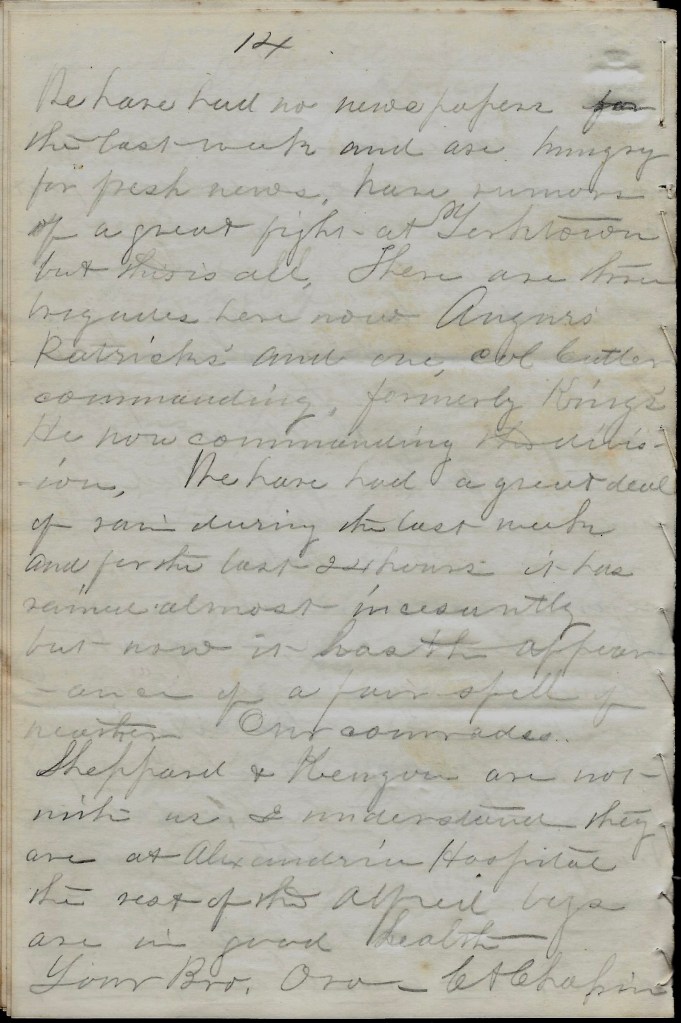 14
We have had no news papers for
the last week and are hungry
for fresh news, have rumors
of a great fight at Yorktown
but this is all, There are three
brigades here now Augurs
Patricks and one, col Cutler
commanding, formerly King's
He now commanding the divis-
-ion, We have had a great deal
of rain during the last week
and for the last 24 hours it has
rained almost incesantly
but now it has the appear-
-ance of a fair spell of
weather Our comrades.
Sheppard & Kenyon are not
with us I understand they
are at Alexandria Hospital
the rest of the Alfred boys
are in good health
Your Bro, Oro - Chapin